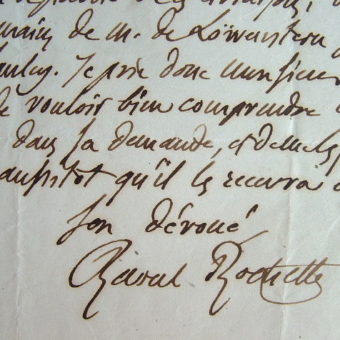 de M. de Lowenstern
Je prie donc Monsieur
de vouloir bien comprendre
dans sa demande, et de me les
aussitot qu'il les recevra
son dévoué
Raoul Rochette